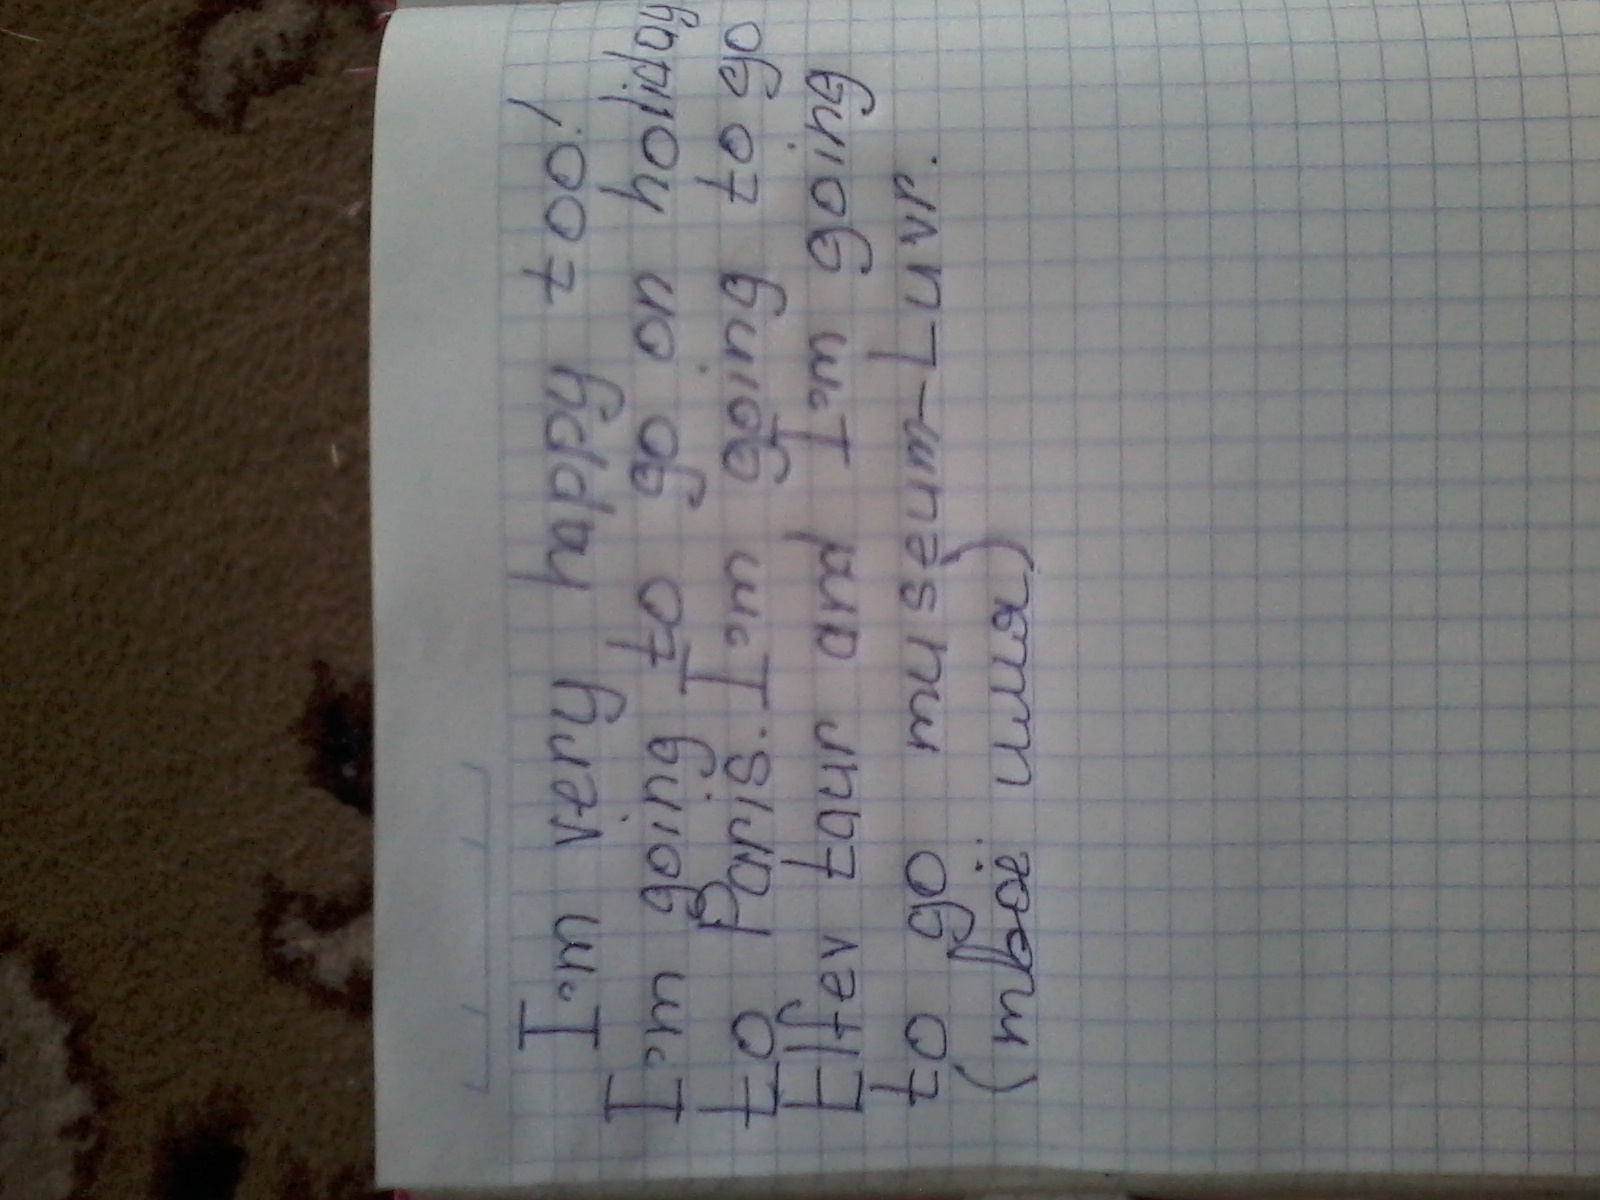 I'm very happy too!
I'm going to go on holiday
to Paris. I'm going to go
Elfev taur and I'm going
to go museum-Luvr.
(твоё имя)